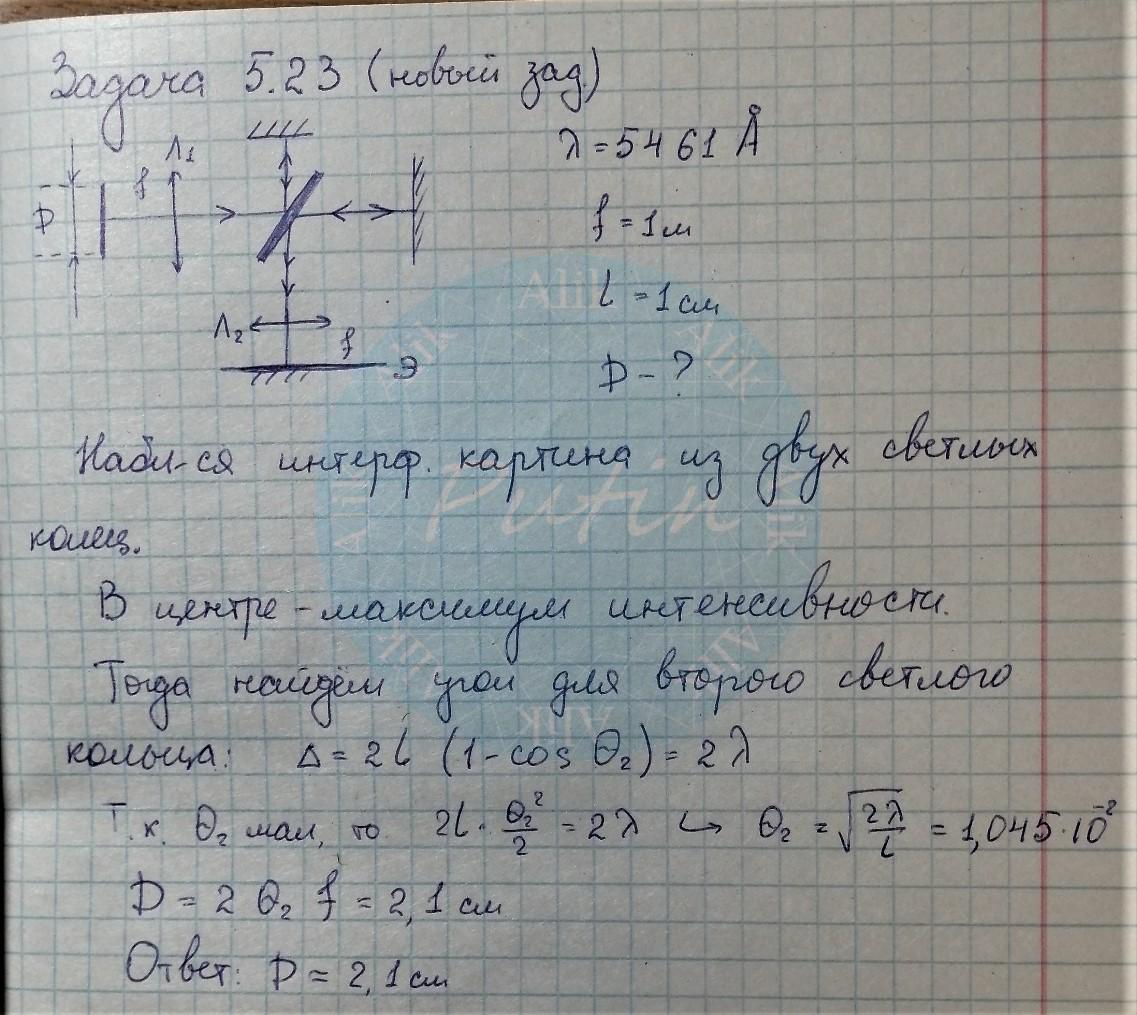 Задача 5.23 (новый зад)
λ = 5461 Å
f = 1 м
l = 1 см
D - ?
D
f
Л1
Л2
f
Э
Набл-ся интерф. картина из двух светлых
колец.
В центре - максимум интенсивности.
Тогда найдём угол для второго светлого
кольца: Δ = 2l (1 - cos θ₂) = 2λ
Т.к. θ₂ мал, то 2l · θ₂²/2 = 2λ ↪ θ₂ = √(2λ/l) = 1,045·10⁻²
D = 2 θ₂ f = 2,1 см
Ответ: D = 2,1 см
Alik
Alik
Alik
Alik
Alik
Alik
Alik
Alik
Putin